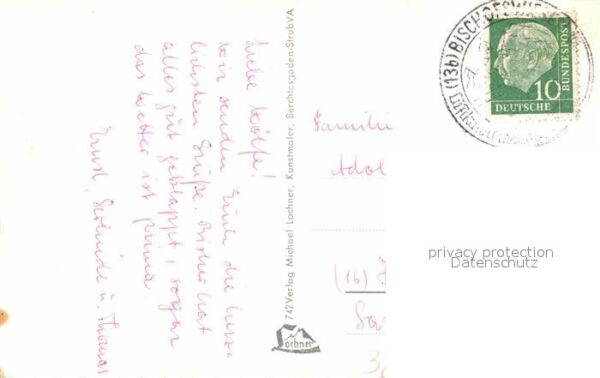 Liebe Wölfe!
Wir senden Euch die herz-
lichsten Grüße. Bisher hat
alles gut geklappt, sogar
das Wetter ist prima.
Ernst, Gerlinde u. Thomas
742 Verlag Michael Lochner, Kunstmaler, Berchtesgaden-Strub VA
Lochner
(13b) BISCHOFSWIESEN
10
DEUTSCHE
BUNDESPOST
Familie
Adol
(16)
privacy protection
Datenschutz